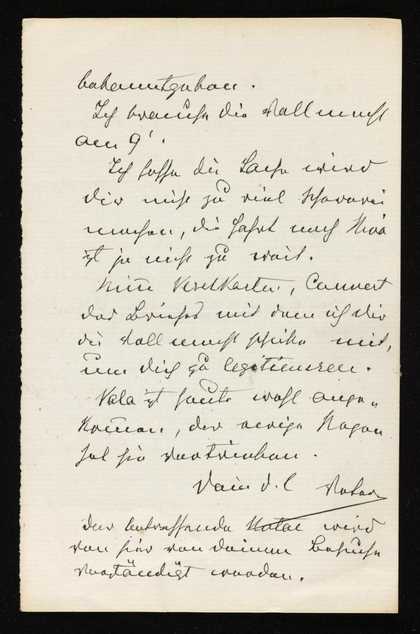 bekanntgeben.
Ich brauche die Vollmacht
am 9'.
Ich hoffe die Sache wird
dir nicht zu viel Scherereien
machen, die Fahrt nach
ist ja nicht zu weit.
Nimm Visitkarten, Couvert
des Briefes mit dem ich dir
die Vollmacht schicke mit,
um dich zu legitimieren.
ist heute wohl ange-
kommen, der ewige Regen
hat sie vertrieben.
Dein d. l Vater
der betreffende Notar wird
von hier von deinem Besuche
verständigt werden.